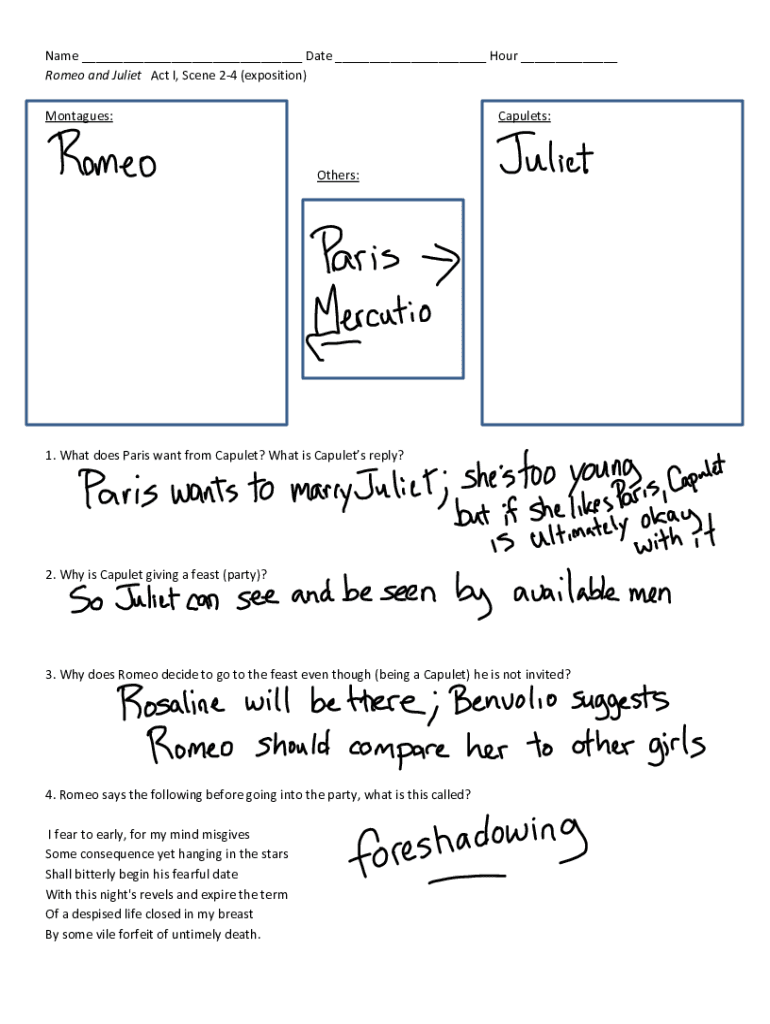 Name ________________________________ Date ______________________ Hour ______________
Romeo and Juliet Act I, Scene 2-4 (exposition)
Montagues:
Romeo
Others:
Paris →
Mercutio
←
Capulets:
Juliet
1. What does Paris want from Capulet? What is Capulet's reply?
Paris wants to marry Juliet; she's too young
but if she likes Paris, Capulet
is ultimately okay
with it
2. Why is Capulet giving a feast (party)?
So Juliet can see and be seen by available men
3. Why does Romeo decide to go to the feast even though (being a Capulet) he is not invited?
Rosaline will be there; Benvolio suggests
Romeo should compare her to other girls
4. Romeo says the following before going into the party, what is this called?
I fear to early, for my mind misgives
Some consequence yet hanging in the stars
Shall bitterly begin his fearful date
With this night's revels and expire the term
Of a despised life closed in my breast
By some vile forfeit of untimely death.
foreshadowing